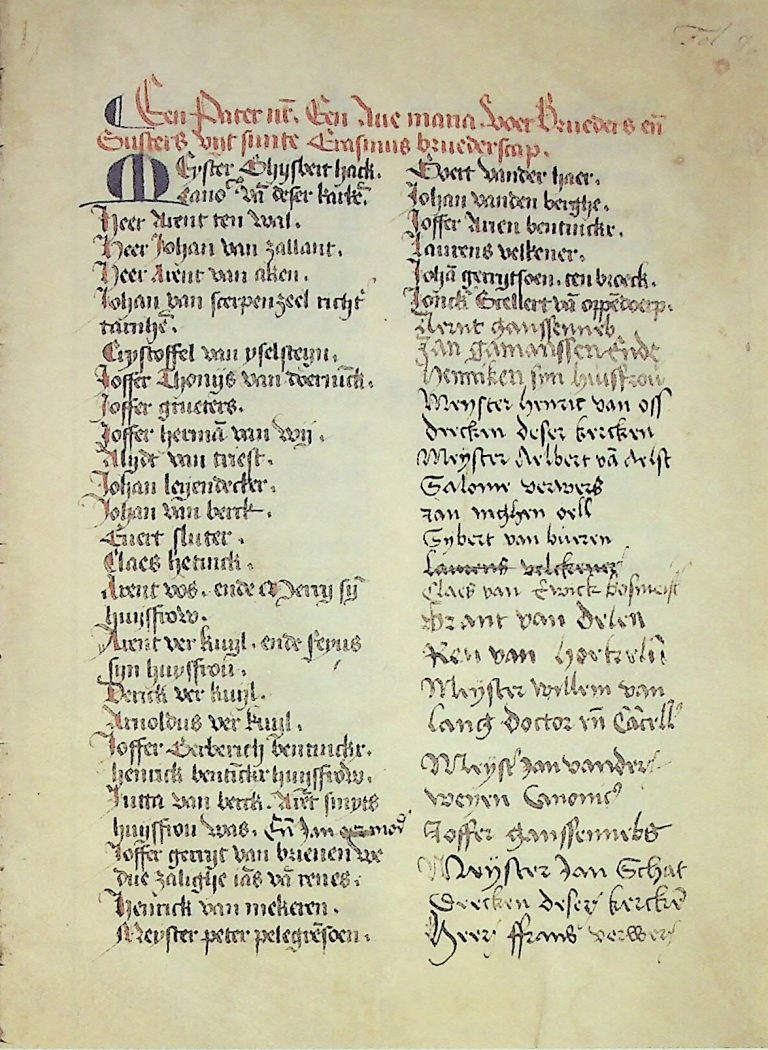 Fol
Een Pater nr. Een Aue maria voer Brueders en
Susters vyt sunte Erasmus bruederscap.
Meyster Ghysbert hack.
cano va deser karke.
Heer Arent ten wal.
Heer Johan van zallant.
Heer Arent van aken.
Johan van scerpenzeel richt
Crystoffel van yselsteyn.
Joffer Thonys van doernick.
Joffer grueters.
Joffer herma van wy.
Alydt van triest.
Johan leyendecker.
Johan van berck.
Euert sluter.
Claes hetinck.
Arent vos. ende Merry sy
huysfrow.
Arent ver kuyl. ende feyus
syn huysfrou.
Derick ver kuyl.
Arnoldus ver kuyl.
Joffer Gerberich bentinckr.
henrick bentickr huysfrow.
Jutta van berck. Aret smyts
huysfrou was. En Jan
Joffer gerryt van brienen we
due zalighe ians va renes.
Henrick van mekeren.
Meyster peter pelegresoen.
Evert vander haer.
Johan vanden berghe.
Joffer Arien bentinckr.
Laurens velkener.
Joha gerrytsoen. ten broeck.
Jonck Stellert va oppedorp.
Aernt gaussenneb
Jan gamanssen Ende
Henriken syn huisfrou
Meyster henric van oss
deecken deser kercken
Meyster Aelbert va Aelst
Salome verwers
Jan inghen oell
Gybert van bueren
Laurens velckener
Claes van Ewick
Brant van Delen
Ren van
Meyster willem van
Lang doctor en Cacell
Meyst Jan vander
weyen Canonic
Joffer gaussennebs
Meyster Jan Schat
Deecken deser kercke
Heer ffrans verwer